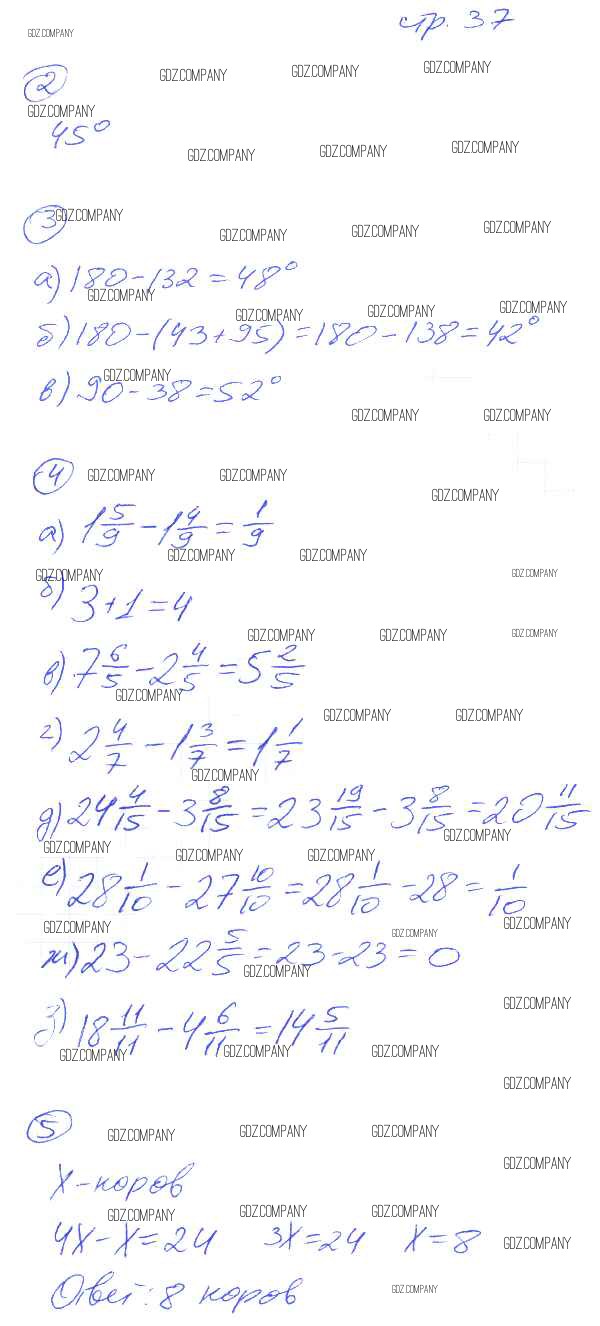 стр. 37
2
45°
3
а) 180-132=48°
б) 180-(43+95)=180-138=42°
в) 90-38=52°
4
а) 1 5/9 - 1 4/9 = 1/9
б) 3+1=4
в) 7 6/5 - 2 4/5 = 5 2/5
г) 2 4/7 - 1 3/7 = 1 1/7
д) 24 4/15 - 3 8/15 = 23 19/15 - 3 8/15 = 20 11/15
е) 28 1/10 - 27 10/10 = 28 1/10 - 28 = 1/10
ж) 23 - 22 5/5 = 23-23=0
з) 18 11/11 - 4 6/11 = 14 5/11
5
X-коров
4X-X=24 3X=24 X=8
Ответ: 8 коров
GDZ.COMPANY